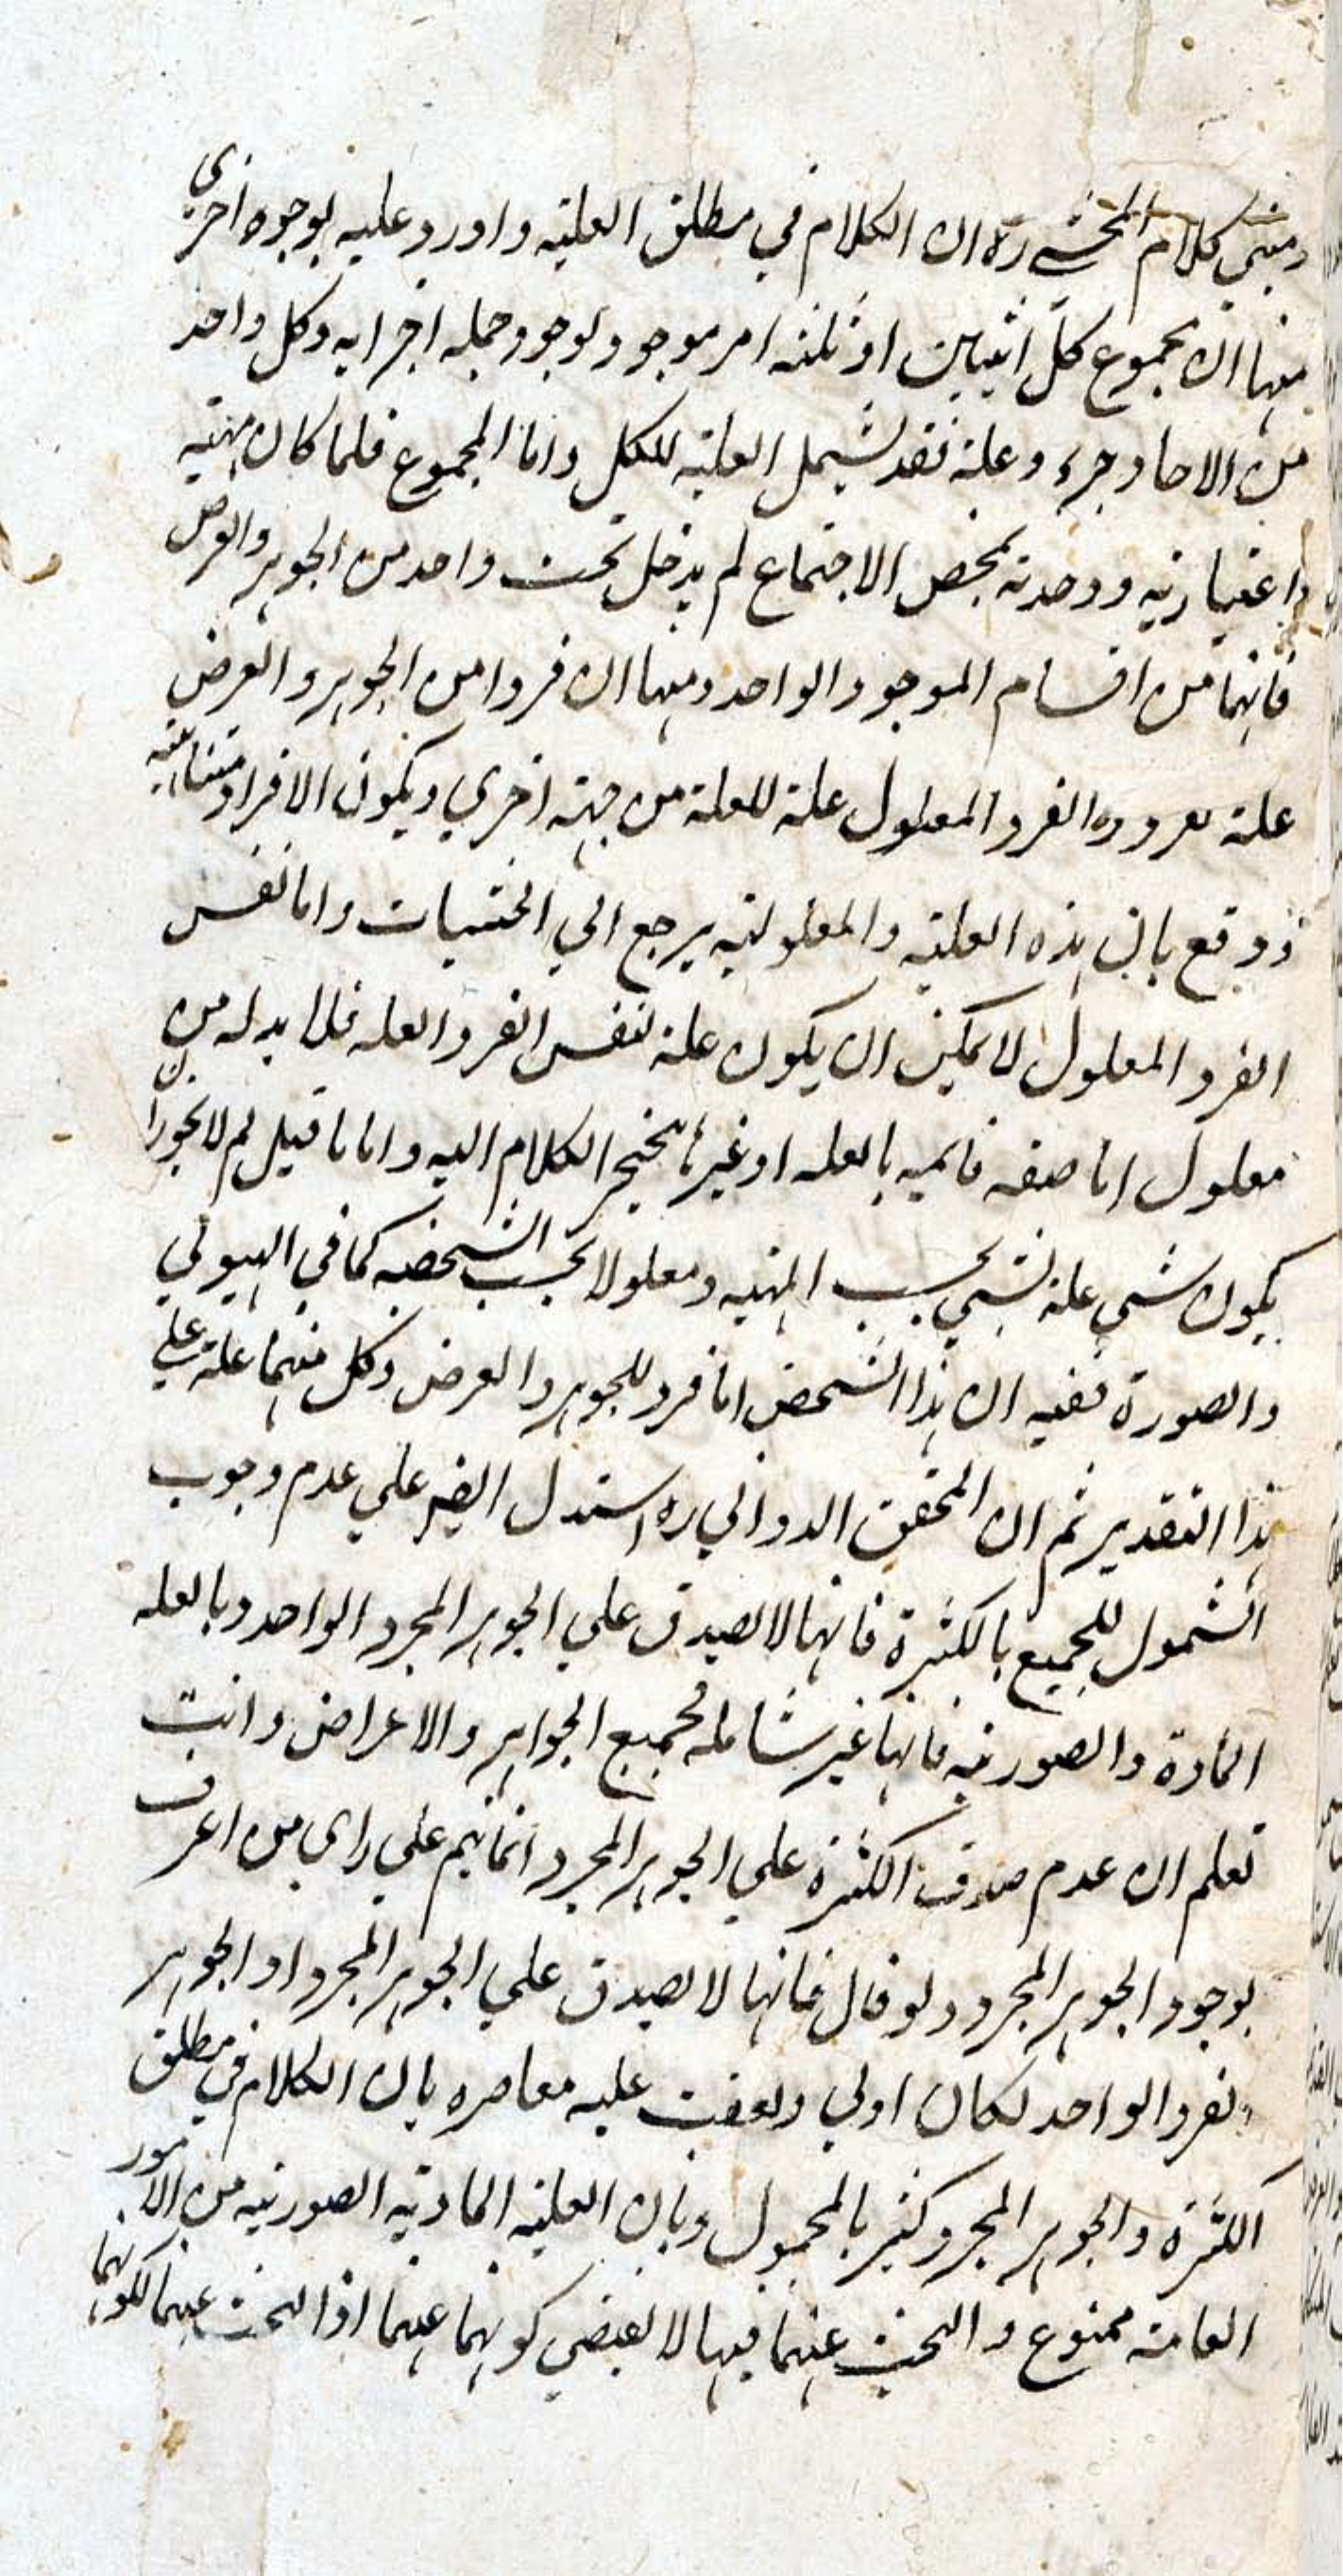 ومبني كلام المحشي ره ان الكلام في مطلق العلية واورد عليه بوجوه اخري
منها ان مجموع كل اثنين او ثلثة امر موجود لوجود جملة اجزايه وكل واحد
من الاحاد جزء وعلة فقد يشمل العلية للكل واما المجموع فلما كان مهيته
اعتبارية ووحدته بمحض الاجتماع لم يدخل تحت واحد من الجوهر والعرض
فانهما من اقسام الموجود الواحد ومنها ان فردا من الجوهر والعرض
علة الفرد المعلول علة للعلة من جهة اخري ويكون الافراد متناهية
ودفع بان هذه العلية والمعلولية يرجع الي الحيثيات واما نفس
الفرد المعلول لا يمكن ان يكون علة لنفس الفرد العلة فلا بد له من
معلول اما صفة قايمة بالعلة او غيرها فينجر الكلام اليه واما ما قيل لم لا يجوز ان
يكون شي علة لشي بحسب المهية ومعلولا بحسب الشخصية كما في الهيولي
والصورة ففيه ان هذا الشخص اما فرد للجوهر والعرض وكل منهما علة علي
هذا التقدير ثم ان المحقق الدواني ره استدل ايضا علي عدم وجوب
الشمول للجميع بالكثرة فانها لا يصدق علي الجوهر المجرد الواحد وبالعلة
المادة والصورية فانها غير شاملة لجميع الجواهر والاعراض وانت
تعلم ان عدم صدق الكثرة علي الجوهر المجرد انما يتم علي راي من اعترف
بوجود الجوهر المجرد ولو قال فانها لا يصدق علي الجوهر المجرد او الجوهر
الفرد الواحد لكان اولي وتعقب عليه معاصره بان الكلام في مطلق
الكثرة والجوهر المجرد كثير بالمحمول وبان العلية المادية الصورية من الامور
العامة ممنوع والبحث عنهما فيها لا يقتضي كونهما عنهما اذا البحث عنهما لكونهما